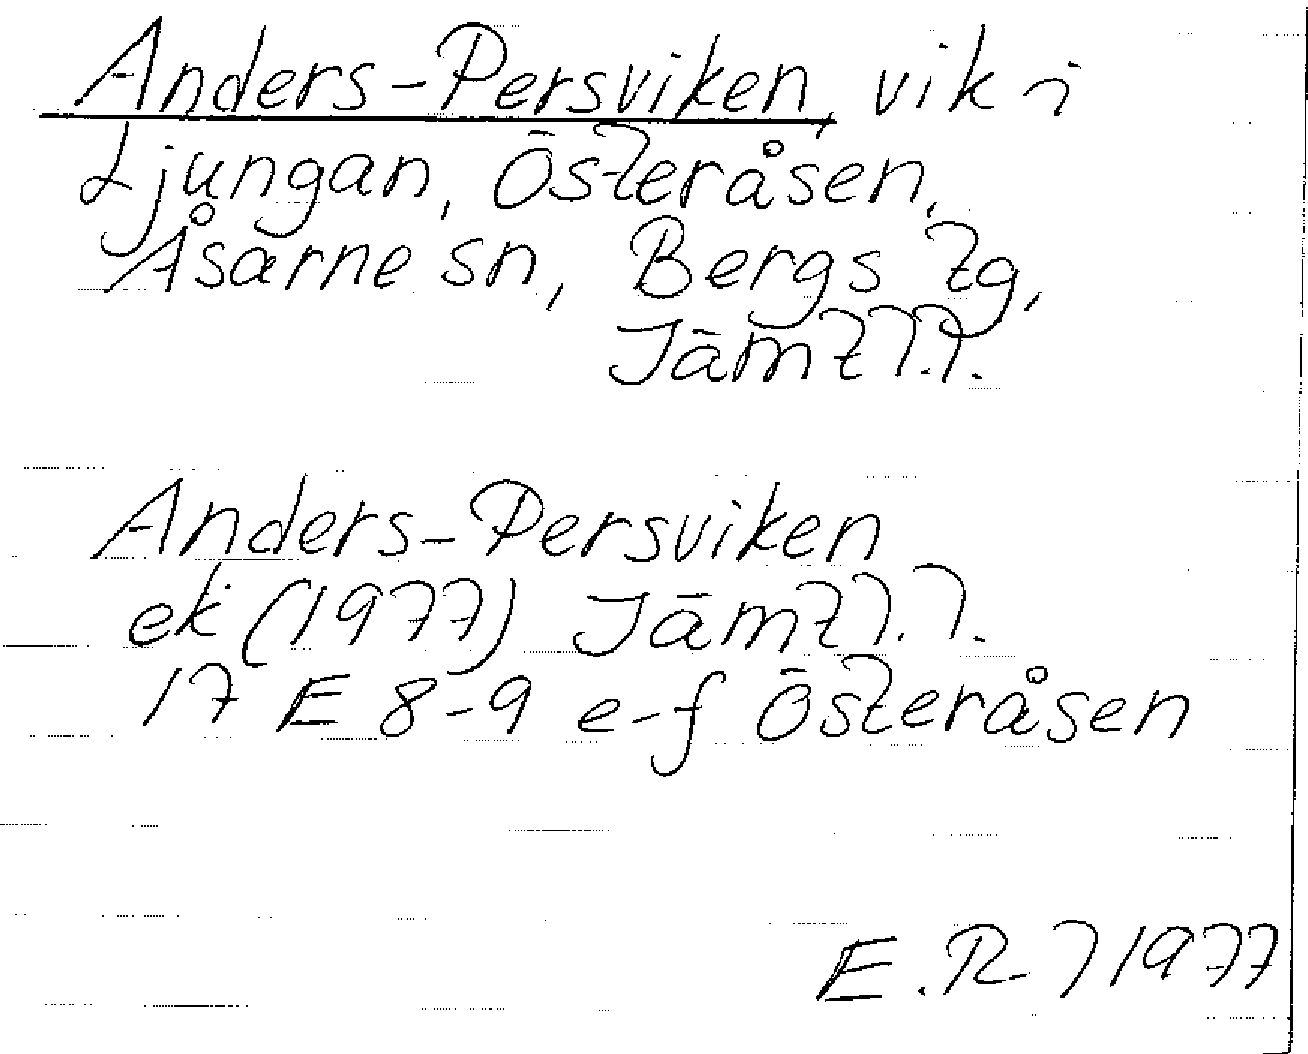 Anders-Persviken, vik i
Ljungan, Österåsen,
Åsarne sn, Bergs tg,
Jämtl.l.
Anders-Persviken
ek (1977) Jämtl.l.
17 E 8-9 e-f Österåsen
E.R. 1977